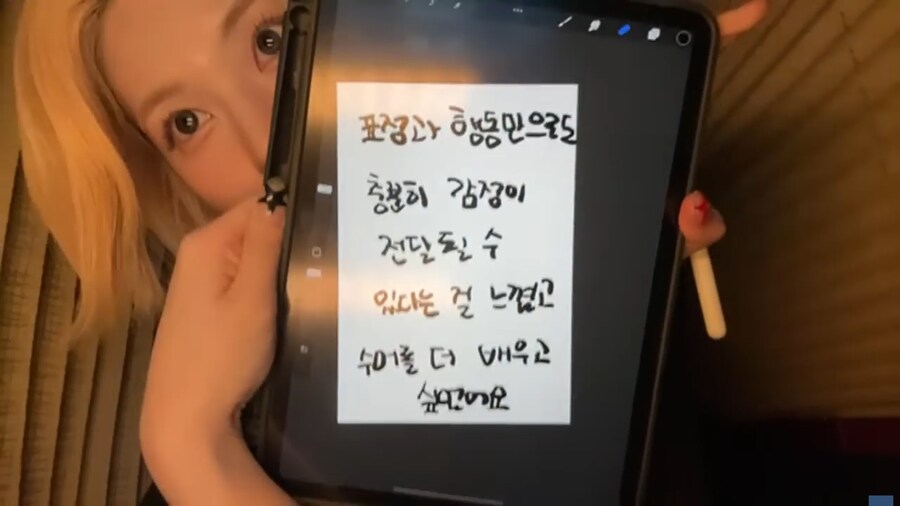 표정과 행동만으로도
충분히 감정이
전달될 수
있다는 걸 느꼈고
수어를 더 배우고